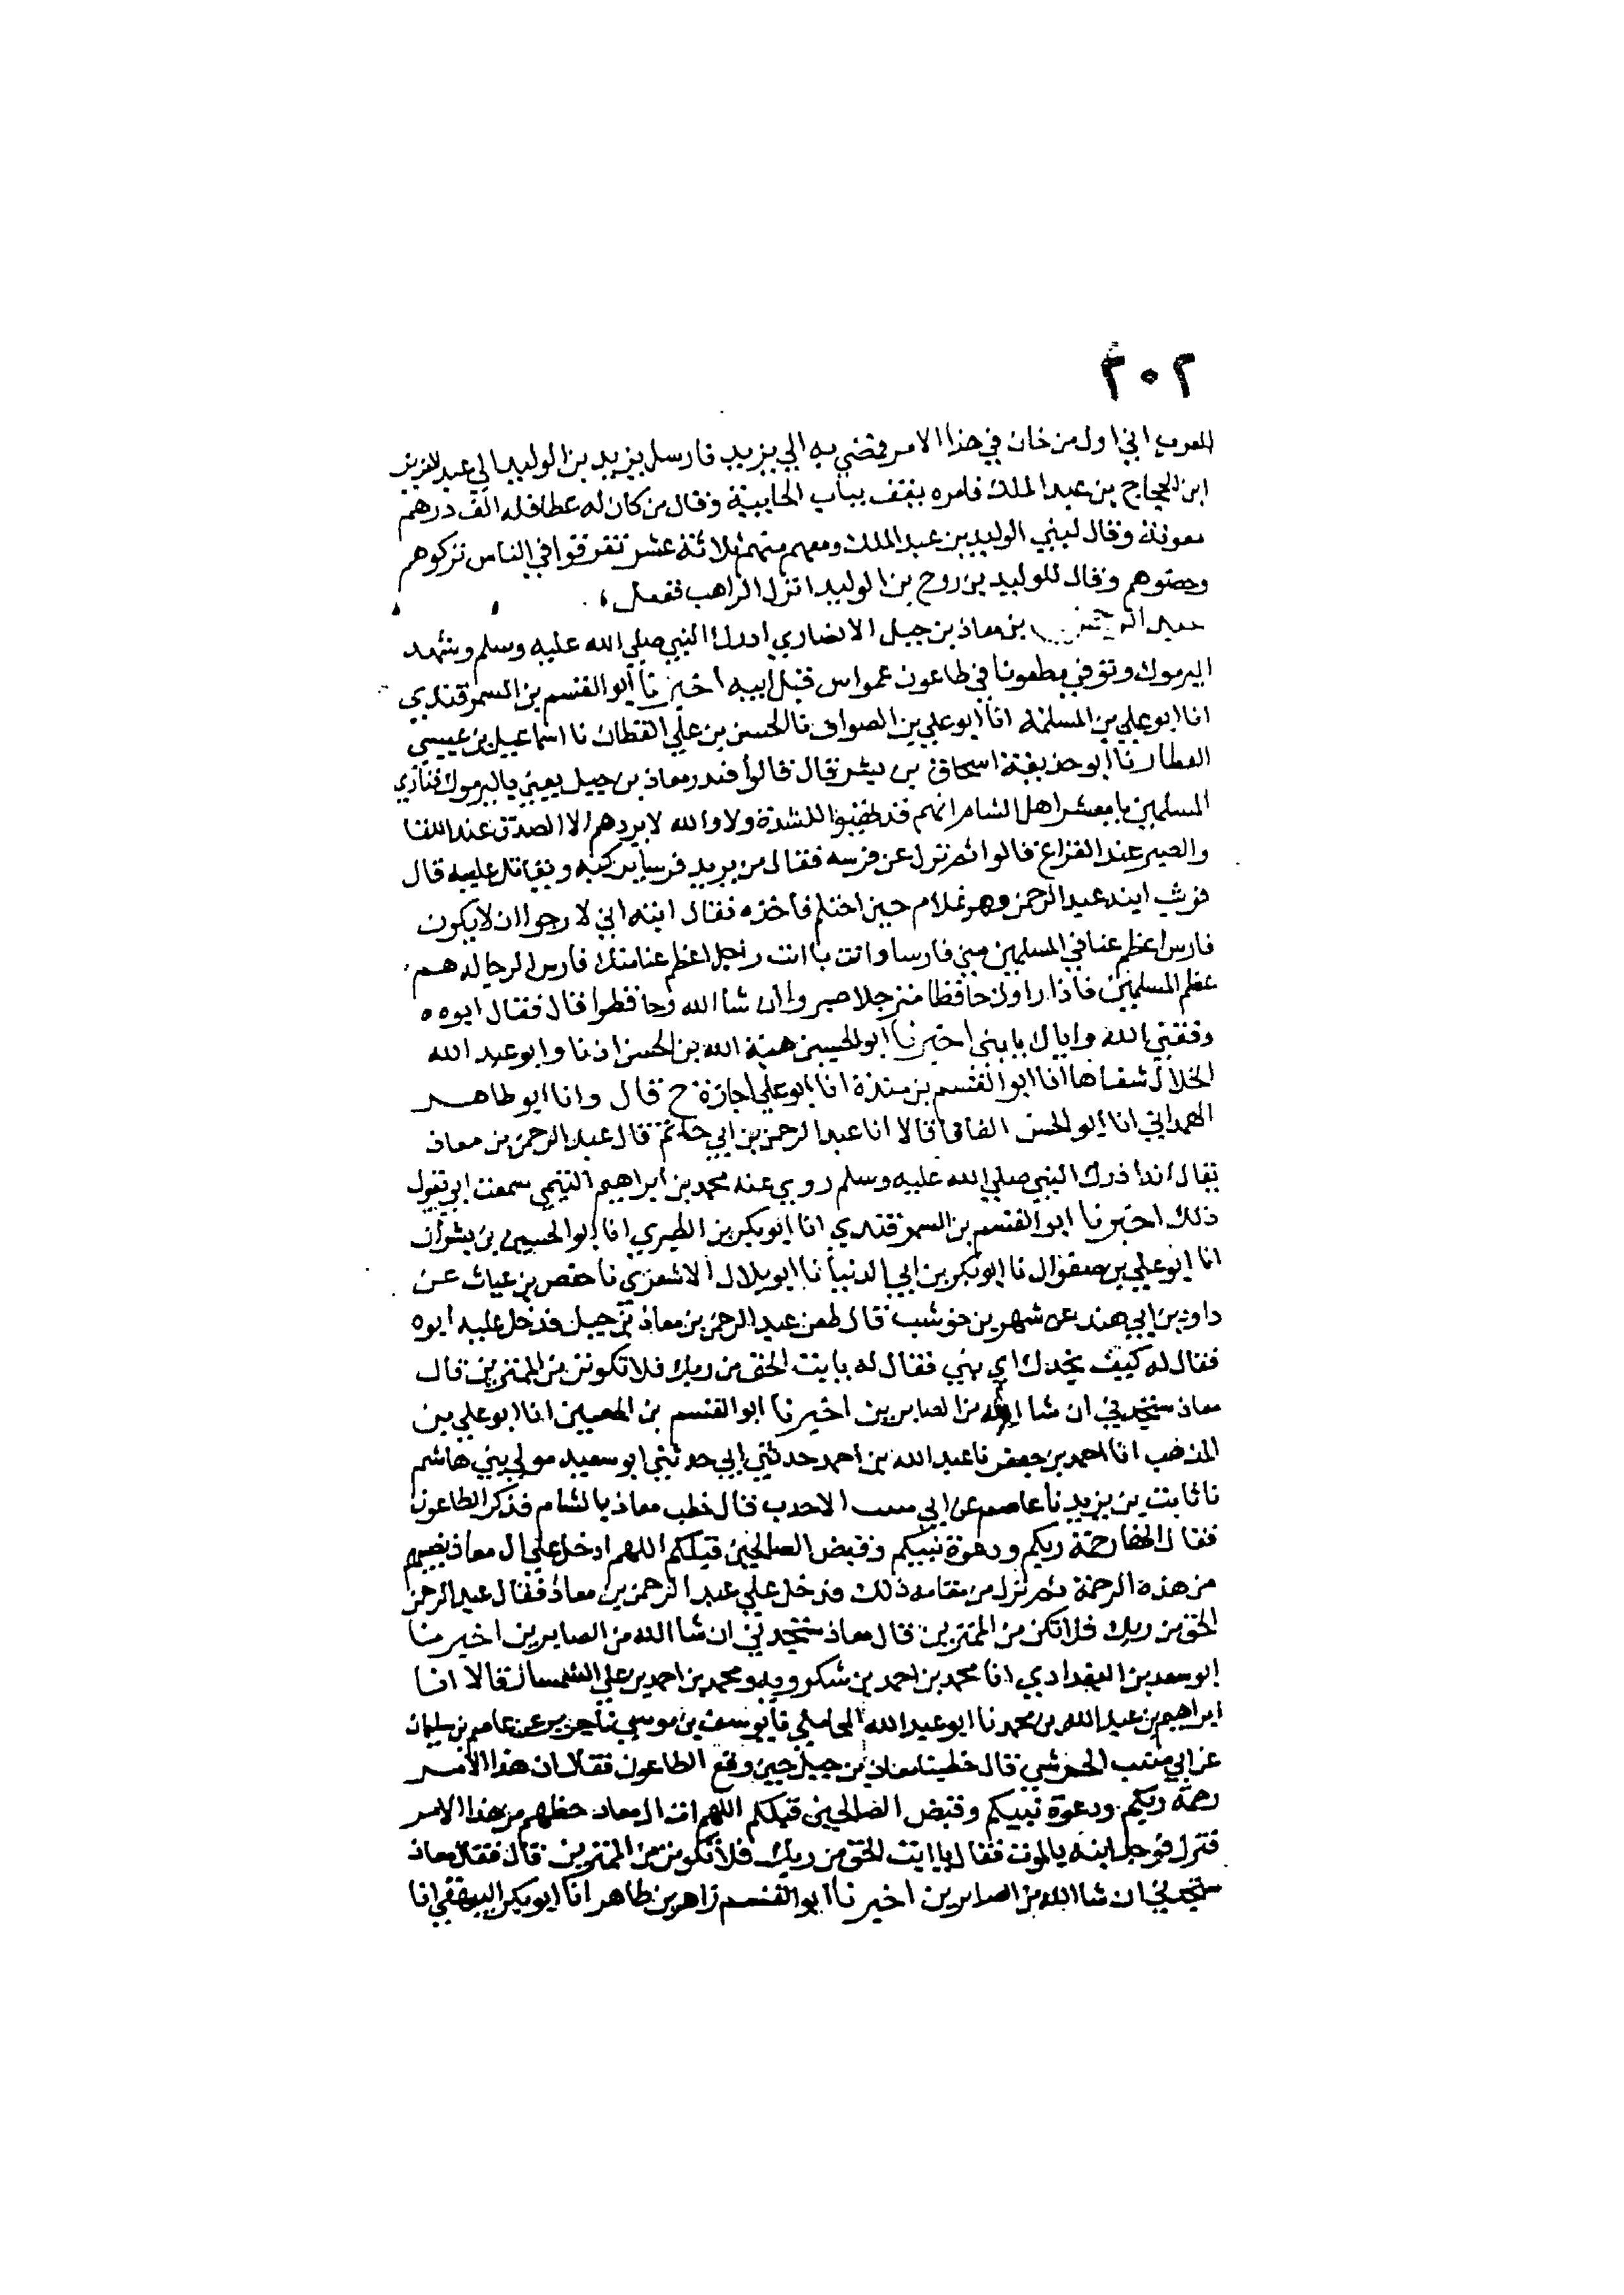 ٢٠٢
العرب اني اول من خان في هذا الامر فمضي به الي يزيد فارسل يزيد بن الوليد الي عبد العزيز
ابن الحجاج بن عبد الملك فامره بقف بباب الجابية وقال من كان له عطا فله الف درهم
معونة وقال لبني الوليد بن عبد الملك ومعهم منهم ثلاثة عشر تفرقوا في الناس تركوهم
وحضوهم وقال للوليد بن روح بن الوليد انزل الراهب ففعل
عبد الرحمن بن معاذ بن جبل الانصاري ادرك النبي صلي الله عليه وسلم وشهد
اليرموك وتوفي مطعونا في طاعون عمواس قبل ابيه اخبرنا ابو القسم بن السمرقندي
انا ابو علي بن المسلمة انا ابو علي بن الصواف نا الحسن بن علي القطان نا اسماعيل بن عيسي
العطار نا ابو حذيفة اسحاق بن بشر قال قالوا فندر معاذ بن جبل يعني باليرموك فنادي
المسلمين يا معشر اهل الشام انهم قد تهيؤا للشدة ولا والله لا يردهم الا الصدق عند اللقا
والصبر عند القراع قالوا ثم نزل عن فرسه فقال من يريد فرسا يركبه ويقاتل عليه قال
فوثب ابنه عبد الرحمن وهو غلام حين احتلم فاخذه فقال ابنه اني لا رجوا ان لا يكون
فارس اعظم عنا في المسلمين مني فارسا وانت يا ابت رجل اعظم عنا منك فارس الرجاله هم
عظم المسلمين فاذا راوك حافظا مترجلا صبروا ان شا الله وحافظوا قال فقال ابوه
وفقني الله واياك يا بني اخبرنا ابو الحسين هبة الله بن الحسن اذنا وابو عبد الله
الخلال شفاها انا ابو القسم بن مندة انا ابو علي اجازة ح قال وانا ابو طاهر
الهمداني انا ابو الحسن الفافا قالا انا عبد الرحمن بن ابي حاتم قال عبد الرحمن بن معاذ
يقال انه ادرك النبي صلي الله عليه وسلم روي عنه محمد بن ابراهيم التيمي سمعت ابي يقول
ذلك اخبرنا ابو القسم بن السمرقندي انا ابو بكر بن الطبري انا ابو الحسين بن بشران
انا ابو علي بن صفوان نا ابو بكر بن ابي الدنيا نا ابو بلال الاشعري نا حفص بن غياث عن
داود بن ابي هند عن شهر بن حوشب قال طعن عبد الرحمن بن معاذ بن جبل فدخل عليه ابوه
فقال له كيف تجدك اي بني فقال له يا ابت الحق من ربك فلا تكونن من الممترين قال
معاذ ستجدني ان شا الله من الصابرين اخبرنا ابو القسم بن الحصين انا ابو علي بن
المذهب انا احمد بن جعفر نا عبد الله بن احمد حدثني ابي حدثني ابو سعيد مولي بني هاشم
نا ثابت بن يزيد نا عاصم عن ابي منيب الاحدب قال خطب معاذ بالشام فذكر الطاعون
فقال انها رحمة ربكم ودعوة نبيكم وقبض الصالحين قبلكم اللهم ادخل علي ال معاذ نصيبهم
من هذه الرحمة ثم نزل من مقامه ذلك فدخل علي عبد الرحمن بن معاذ فقال عبد الرحمن
الحق من ربك فلا تكن من الممترين قال معاذ ستجدني ان شا الله من الصابرين اخبرنا
ابو سعد بن البغدادي انا محمد بن احمد بن شكرويه ومحمد بن احمد بن علي السمسار قالا انا
ابراهيم بن عبد الله بن محمد نا ابو عبد الله المحاملي نا يوسف بن موسي نا جرير عن عاصم بن سليمان
عن ابي منيب الجرشي قال خطبنا معاذ بن جبل حين وقع الطاعون فقال ان هذا الامر
رحمة ربكم ودعوة نبيكم وقبض الصالحين قبلكم اللهم ات ال معاذ حظهم من هذا الامر
فنزل فوجد ابنه بالموت فقال يا ابت الحق من ربك فلا تكونن من الممترين قال فقال معاذ
ستجدني ان شا الله من الصابرين اخبرنا ابو القسم زاهر بن طاهر انا ابو بكر البيهقي انا